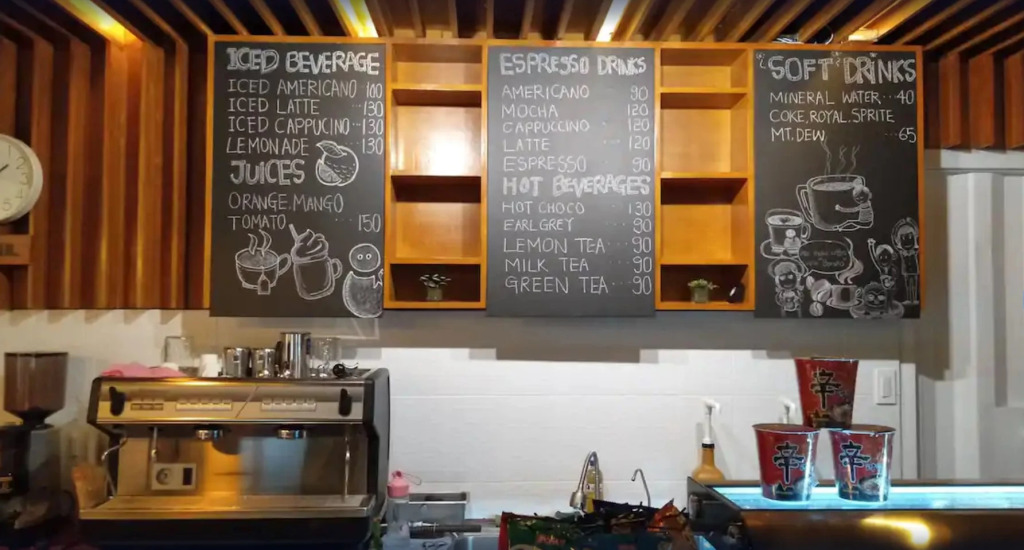 ICED BEVERAGE
ICED AMERICANO 100
ICED LATTE 130
ICED CAPPUCINO 130
LEMONADE 130
JUICES
ORANGE, MANGO
TOMATO 150
ESPRESSO DRINKS
AMERICANO 90
MOCHA 120
CAPPUCCINO 120
LATTE 120
ESPRESSO 90
HOT BEVERAGES
HOT CHOCO 130
EARL GREY 90
LEMON TEA 90
MILK TEA 90
GREEN TEA 90
"SOFT" DRINKS
MINERAL WATER 40
COKE, ROYAL, SPRITE
MT. DEW 65
辛
辛
辛